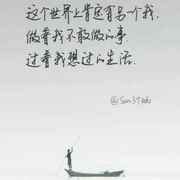 这个世界上肯定有另一个我，
做着我不敢做的事，
过着我想过的生活。